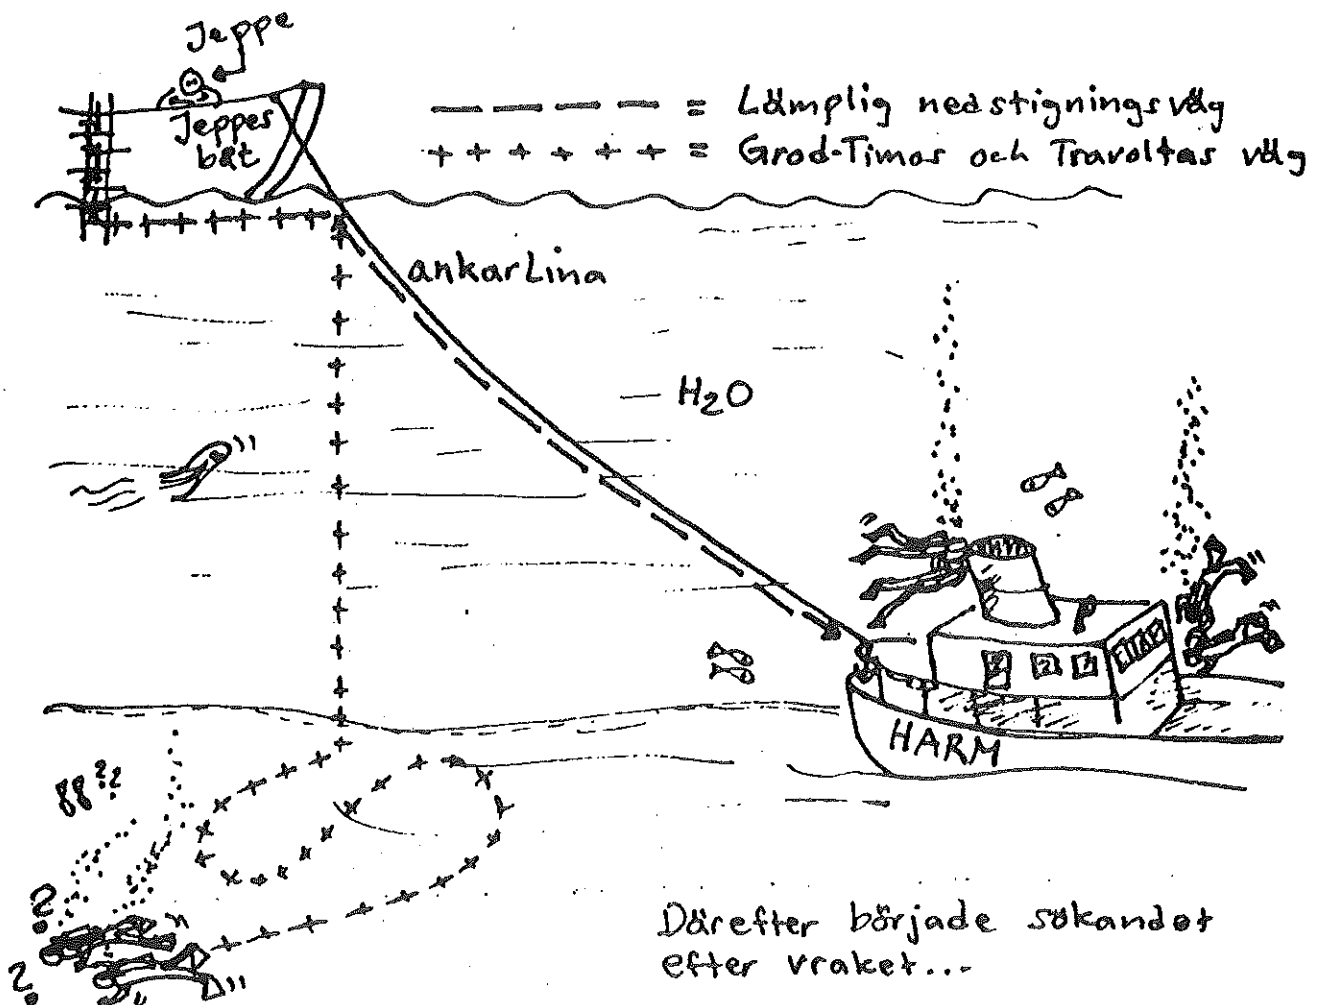 Jeppe
Jeppes
båt
= Lämplig nedstigningsväg
= Grod-Timos och Travoltas väg
ankarLina
H2O
HARM
??
?
?
Därefter började sökandet
efter vraket...